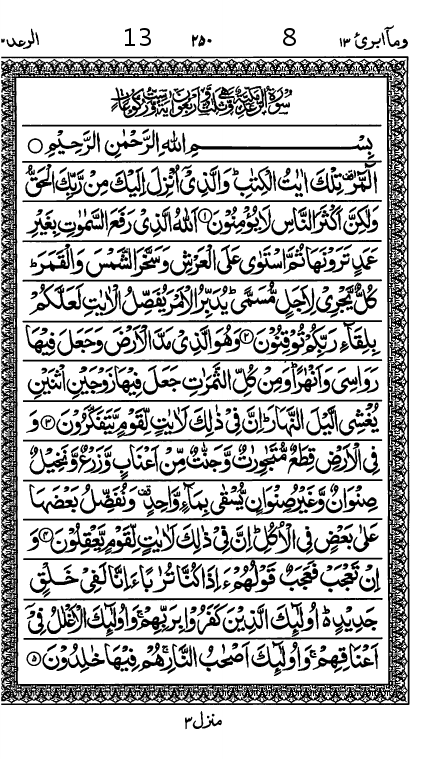 ومآ ابرئ ١٣ 8 ٢٥٠ 13 الرعد
بِسْــــــــمِ اللهِ الرَّحْمٰنِ الرَّحِيْمِ ○
الٓمّٓرٰ تِلْكَ اٰيٰتُ الْكِتٰبِ ؕ وَالَّذِيْۤ اُنْزِلَ اِلَيْكَ مِنْ رَّبِّكَ الْحَقُّ
وَلٰكِنَّ اَكْثَرَ النَّاسِ لَا يُؤْمِنُوْنَ ۝۱ اَللهُ الَّذِيْ رَفَعَ السَّمٰوٰتِ بِغَيْرِ
عَمَدٍ تَرَوْنَهَا ثُمَّ اسْتَوٰى عَلَى الْعَرْشِ وَسَخَّرَ الشَّمْسَ وَالْقَمَرَ ؕ
كُلٌّ يَّجْرِيْ لِاَجَلٍ مُّسَمًّى ؕ يُدَبِّرُ الْاَمْرَ يُفَصِّلُ الْاٰيٰتِ لَعَلَّكُمْ
بِلِقَآءِ رَبِّكُمْ تُوْقِنُوْنَ ۝۲ وَهُوَ الَّذِيْ مَدَّ الْاَرْضَ وَجَعَلَ فِيْهَا
رَوَاسِيَ وَاَنْهٰرًا ؕ وَمِنْ كُلِّ الثَّمَرٰتِ جَعَلَ فِيْهَا زَوْجَيْنِ اثْنَيْنِ
يُغْشِي الَّيْلَ النَّهَارَ ؕ اِنَّ فِيْ ذٰلِكَ لَاٰيٰتٍ لِّقَوْمٍ يَّتَفَكَّرُوْنَ ۝۳ وَ
فِي الْاَرْضِ قِطَعٌ مُّتَجٰوِرٰتٌ وَّجَنّٰتٌ مِّنْ اَعْنَابٍ وَّزَرْعٌ وَّنَخِيْلٌ
صِنْوَانٌ وَّغَيْرُ صِنْوَانٍ يُّسْقٰى بِمَآءٍ وَّاحِدٍ ۟ وَنُفَضِّلُ بَعْضَهَا
عَلٰى بَعْضٍ فِي الْاُكُلِ ؕ اِنَّ فِيْ ذٰلِكَ لَاٰيٰتٍ لِّقَوْمٍ يَّعْقِلُوْنَ ۝۴ وَ
اِنْ تَعْجَبْ فَعَجَبٌ قَوْلُهُمْ ءَاِذَا كُنَّا تُرٰبًا ءَاِنَّا لَفِيْ خَلْقٍ
جَدِيْدٍ ؕ۬ اُولٰٓئِكَ الَّذِيْنَ كَفَرُوْا بِرَبِّهِمْ ۚ وَاُولٰٓئِكَ الْاَغْلٰلُ فِيْۤ
اَعْنَاقِهِمْ ۚ وَاُولٰٓئِكَ اَصْحٰبُ النَّارِ ۚ هُمْ فِيْهَا خٰلِدُوْنَ ۝۵
منزل ٣